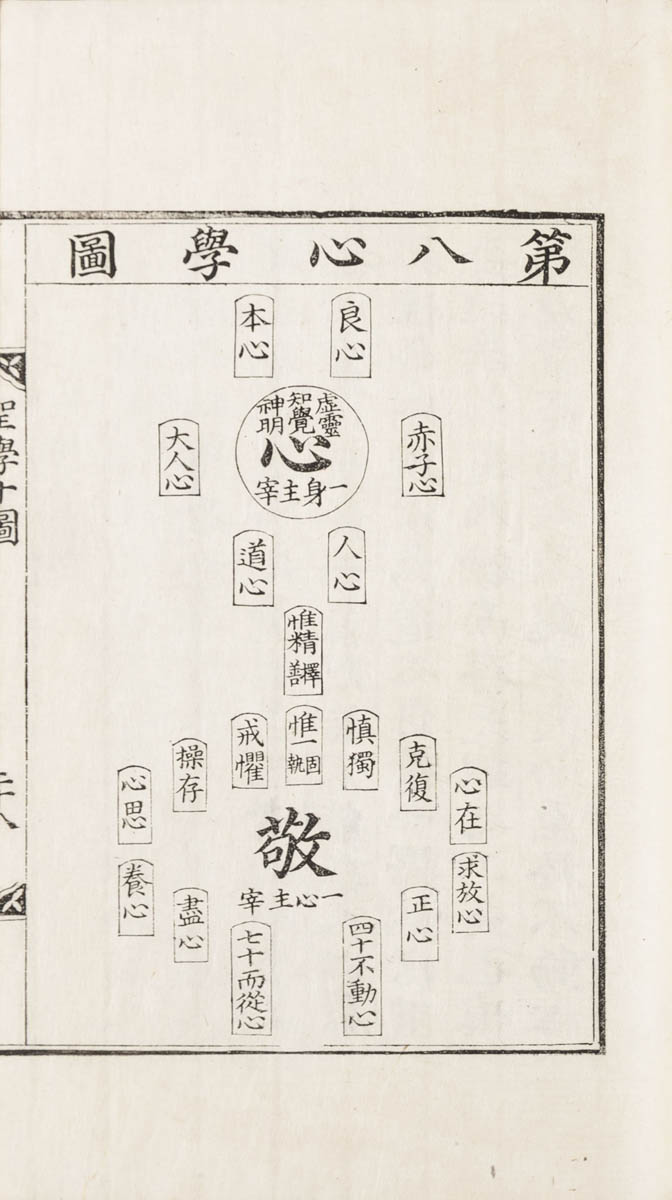 第八心學圖
良心
本心
虛靈
知覺
神明
心
一身主宰
赤子心
大人心
人心
道心
惟精
擇善
惟一
固執
慎獨
戒懼
克復
操存
心在
心思
敬
一心主宰
求放心
養心
正心
盡心
四十不動心
七十而從心
聖學十圖